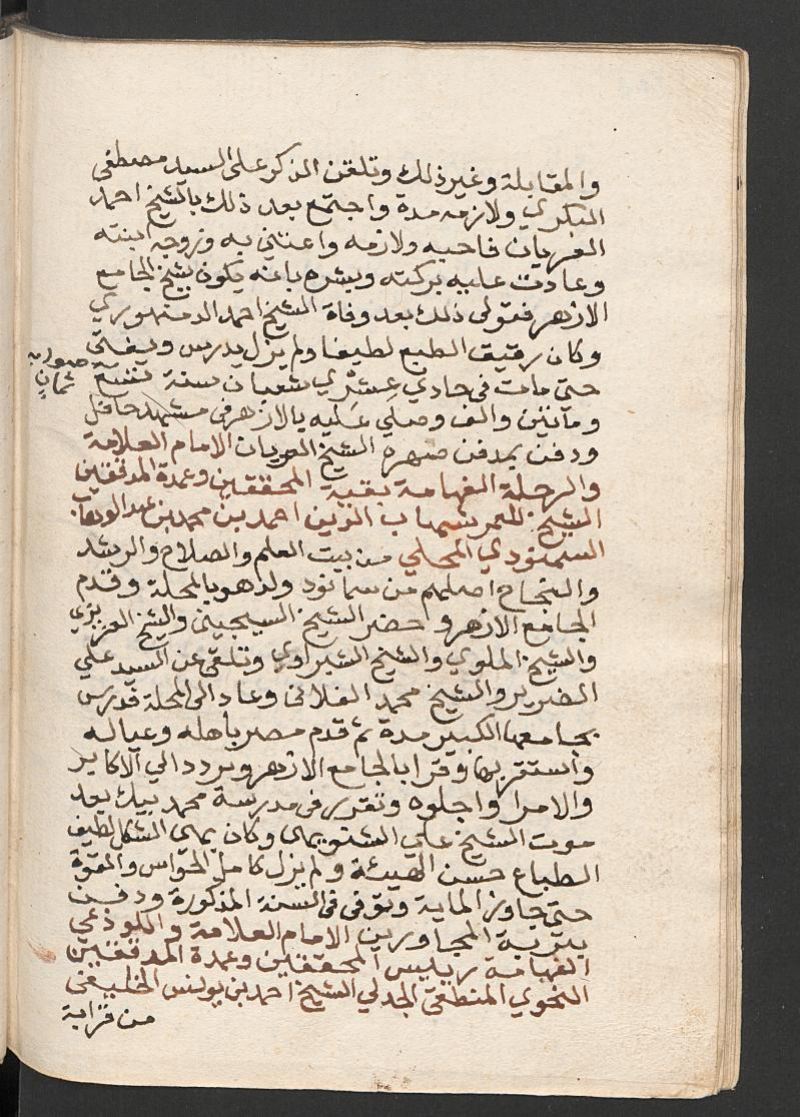 والمقابلة وغير ذلك وتلقن الذكر على السيد مصطفى
البكري ولازمه مدة واجتمع بعد ذلك بالشيخ احمد
العريان فاحبه ولازمه واعتنى به وزوجه ابنته
وعادت عليه بركته وبشره بانه يكون شيخ الجامع
الازهر فتولى ذلك بعد وفاة الشيخ احمد الدمنهوري
وكان رقيق الطبع لطيفا ولم يزل يدرس ويفتي
حتى مات في حادي عشري شعبان سنة تسع
صوابه ثمان
ومايتين والف وصلي عليه بالازهر في مشهد حافل
ودفن بمدفن صهره الشيخ العريان الامام العلامة
والرحلة الفهامة بقية المحققين وعمدة المدققين
الشيخ المعمر شهاب الدين احمد بن محمد بن عبد الوهاب
السمنودي المحلي من بيت العلم والصلاح والرشد
والنجاح اصلهم من سمانود ولد هو بالمحلة وقدم
الجامع الازهر وحضر الشيخ السجيني والشيخ العزيزي
والشيخ الملوي والشيخ الشبراوي وتلقى عن السيد علي
الضرير والشيخ محمد الغلاني وعاد الى المحلة فدرس
بجامعها الكبير مدة ثم قدم مصر باهله وعياله
واستقر بها وقرا بالجامع الازهر وتردد الى الاكابر
والامرا واجلوه وتقرر في مدرسة محمد بيك بعد
موت الشيخ علي الشنويهي وكان بهي الشكل لطيف
الطباع حسن الهيئة ولم يزل كامل الحواس والقوة
حتى جاوز الماية وتوفي في السنة المذكورة ودفن
بتربة المجاورين الامام العلامة واللوذعي
الفهامة رييس المحققين وعمدة المدققين
النحوي المنطقي الجدلي الشيخ احمد بن يونس الخليفي
من قرابة